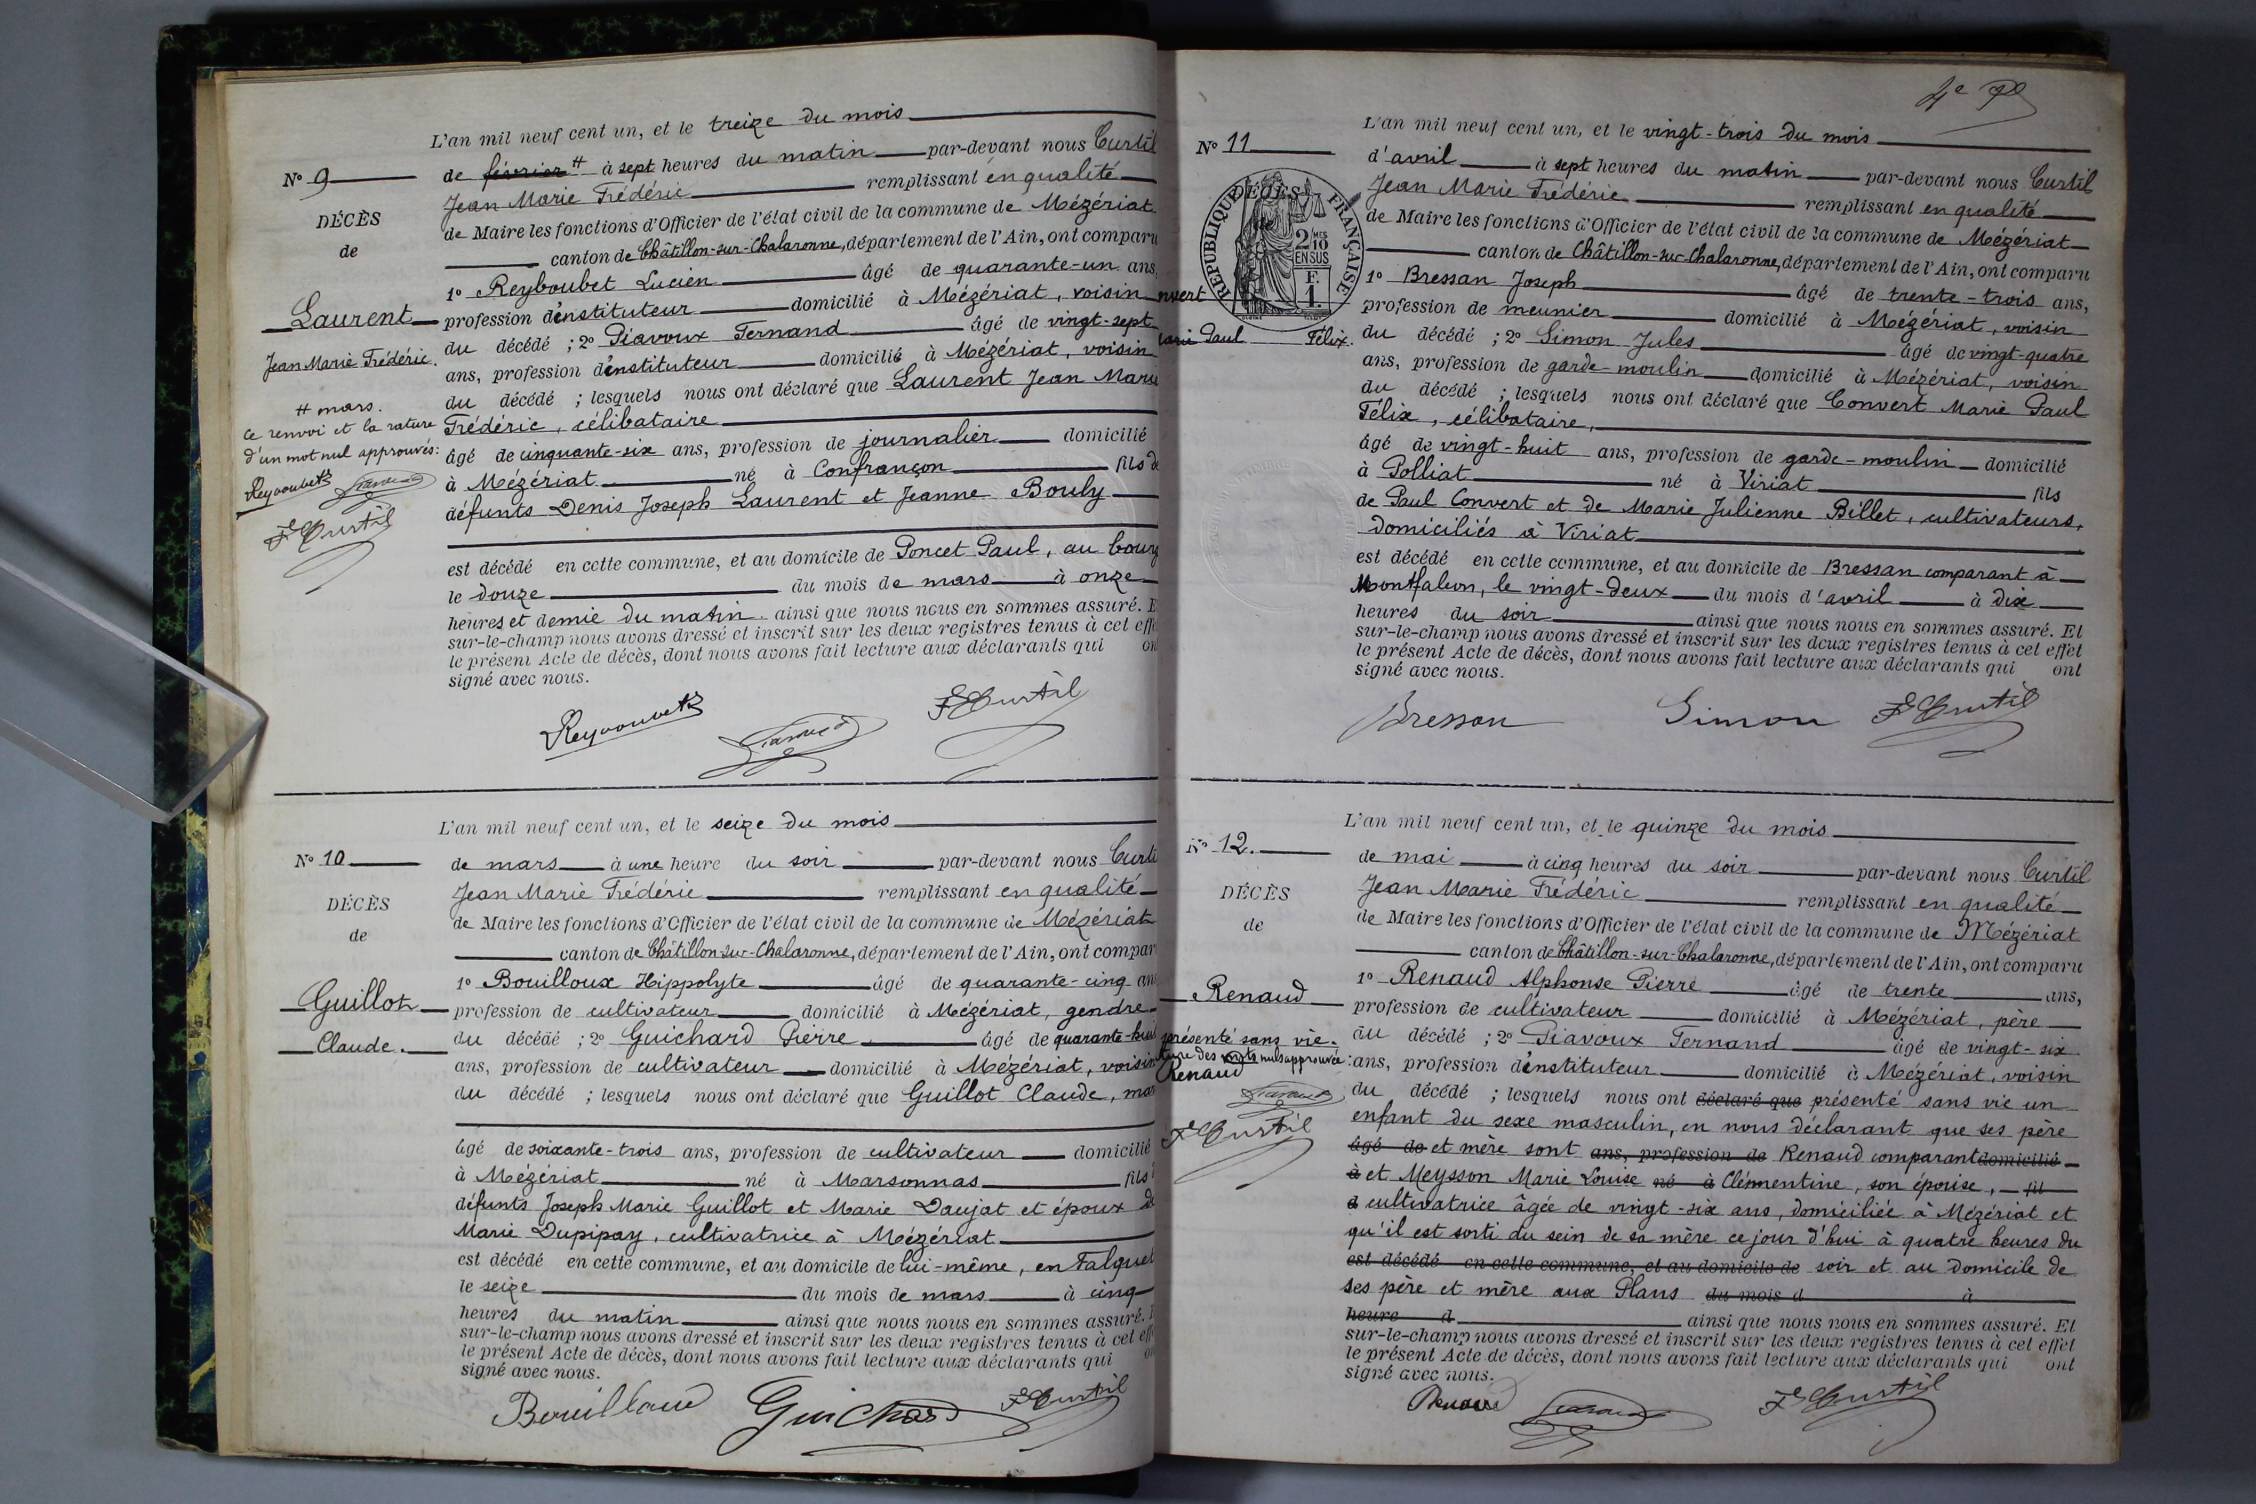 L'an mil neuf cent un, et le treize du mois
N° 9
de février # à sept heures du matin par-devant nous Curtil
Jean Marie Frédéric remplissant en qualité
DÉCÈS
de Maire les fonctions d'Officier de l'état civil de la commune de Mézériat
de
canton de Châtillon-sur-Chalaronne, département de l'Ain, ont comparu
1° Reyboubet Lucien âgé de quarante-un ans,
Laurent
profession d'instituteur domicilié à Mézériat, voisin
du décédé ; 2° Piavoux Fernand âgé de vingt-sept
Jean Marie Frédéric.
ans, profession d'instituteur domicilié à Mézériat, voisin
du décédé ; lesquels nous ont déclaré que Laurent Jean Marie
# mars.
ce renvoi et la rature
d'un mot nul approuvés:
Frédéric, célibataire
âgé de cinquante-six ans, profession de journalier domicilié
à Mézériat né à Confrançon fils de
défunts Denis Joseph Laurent et Jeanne Bouly
Fc Curtil
est décédé en cette commune, et au domicile de Poncet Paul, au bourg
le douze du mois de mars à onze
heures et demie du matin. ainsi que nous nous en sommes assuré. E
sur-le-champ nous avons dressé et inscrit sur les deux registres tenus à cet effe
le présent Acte de décès, dont nous avons fait lecture aux déclarants qui on
signé avec nous.
Fc Curtil
L'an mil neuf cent un, et le seize du mois
N° 10
de mars à une heure du soir par-devant nous Curti
Jean Marie Frédéric remplissant en qualité
DÉCÈS
de Maire les fonctions d'Officier de l'état civil de la commune de Mézériat
de
canton de Châtillon-sur-Chalaronne, département de l'Ain, ont compar
1° Bouilloux Hippolyte âgé de quarante-cinq ans
Guillot
profession de cultivateur domicilié à Mézériat, gendre
Claude.
du décédé ; 2° Guichard Pierre âgé de quarante-huit
ans, profession de cultivateur domicilié à Mézériat, voisin
du décédé ; lesquels nous ont déclaré que Guillot Claude, mar
âgé de soixante-trois ans, profession de cultivateur domicilié
à Mézériat né à Marsonnas fils
défunts Joseph Marie Guillot et Marie Daujat et époux de
Marie Dupipay, cultivatrice à Mézériat
est décédé en cette commune, et au domicile de lui-même, en Falquet
le seize du mois de mars à cinq
heures du matin ainsi que nous nous en sommes assuré.
sur-le-champ nous avons dressé et inscrit sur les deux registres tenus à cet eff
le présent Acte de décès, dont nous avons fait lecture aux déclarants qui on
signé avec nous.
Guichard Fc Curtil
L'an mil neuf cent un, et le vingt-trois du mois
N° 11
d'avril à sept heures du matin par-devant nous Curtil
DÉCÈS
RÉPUBLIQUE FRANÇAISE
2/10 MES
EN SUS
F.
1.
Jean Marie Frédéric remplissant en qualité
de Maire les fonctions d'Officier de l'état civil de la commune de Mézériat
canton de Châtillon-sur-Chalaronne, département de l'Ain, ont comparu
1° Bressan Joseph âgé de trente-trois ans,
nvert
profession de meunier domicilié à Mézériat, voisin
arie Paul Félix.
du décédé ; 2° Simon Jules âgé de vingt-quatre
ans, profession de garde-moulin domicilié à Mézériat, voisin
du décédé ; lesquels nous ont déclaré que Convert Marie Paul
Félix, célibataire,
âgé de vingt-huit ans, profession de garde-moulin domicilié
à Polliat né à Viriat fils
de Paul Convert et de Marie Julienne Billet, cultivateurs,
domiciliés à Viriat
est décédé en cette commune, et au domicile de Bressan comparant à
Montfalcon, le vingt-deux du mois d'avril à dix
heures du soir ainsi que nous nous en sommes assuré. Et
sur-le-champ nous avons dressé et inscrit sur les deux registres tenus à cet effet
le présent Acte de décès, dont nous avons fait lecture aux déclarants qui ont
signé avec nous.
Bressan Simon Fc Curtil
L'an mil neuf cent un, et le quinze du mois
N° 12.
de mai à cinq heures du soir par-devant nous Curtil
Jean Marie Frédéric remplissant en qualité
DÉCÈS
de Maire les fonctions d'Officier de l'état civil de la commune de Mézériat
de
canton de Châtillon-sur-Chalaronne, département de l'Ain, ont comparu
1° Renaud Alphonse Pierre âgé de trente ans,
Renaud
profession de cultivateur domicilié à Mézériat, père
présenté sans vie.
du décédé ; 2° Piavoux Fernand âgé de vingt-six
ture des mots nuls approuvée :
ans, profession d'instituteur domicilié à Mézériat, voisin
Renaud
du décédé ; lesquels nous ont déclaré que présenté sans vie un
Fc Curtil
enfant du sexe masculin, en nous déclarant que ses père
âgé de et mère sont ans, profession de Renaud comparant domicilié
à et Meysson Marie Louise né à Clémentine, son épouse, fil
d cultivatrice âgée de vingt-six ans, domiciliée à Mézériat et
qu'il est sorti du sein de sa mère ce jour d'hui à quatre heures du
est décédé en cette commune, et au domicile de soir et au domicile de
ses père et mère aux Plans du mois d à
heure d ainsi que nous nous en sommes assuré. Et
sur-le-champ nous avons dressé et inscrit sur les deux registres tenus à cet effet
le présent Acte de décès, dont nous avons fait lecture aux déclarants qui ont
signé avec nous.
Renaud Fc Curtil